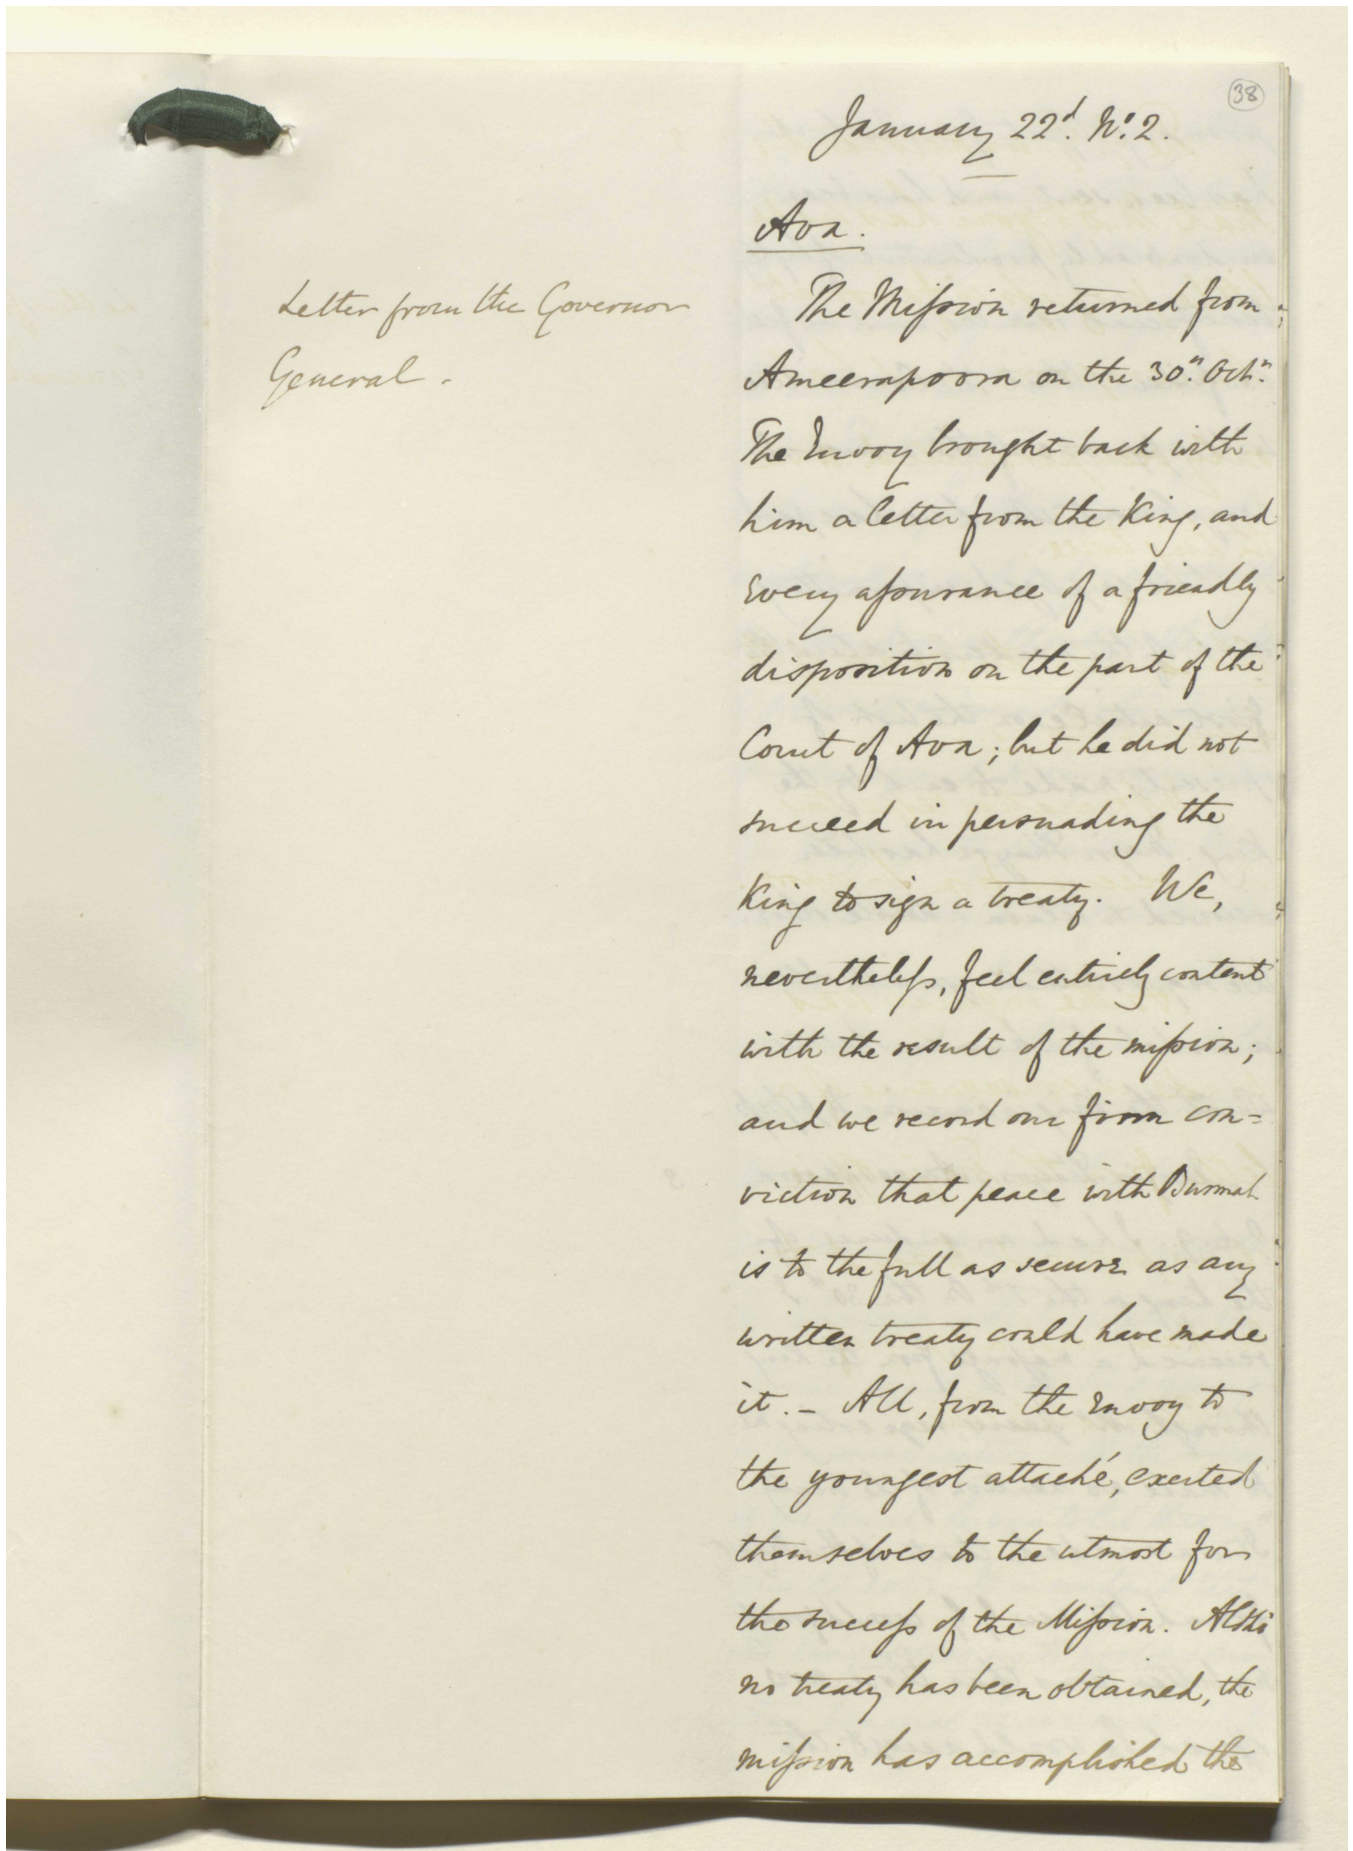 38
January 22d. No. 2.
Ava.
Letter from the Governor
General.
The Mission returned from
Ameerapoora on the 30th. Octr.
The Envoy brought back with
him a letter from the King, and
every assurance of a friendly
disposition on the part of the
Court of Ava; but he did not
succeed in persuading the
King to sign a treaty. We,
nevertheless, feel entirely content
with the result of the mission;
and we record our firm con=
viction that peace with Burmah
is to the full as secure as any
written treaty could have made
it. – All, from the Envoy to
the youngest attaché, exerted
themselves to the utmost for
the success of the Mission. Altho'
no treaty has been obtained, the
mission has accomplished the